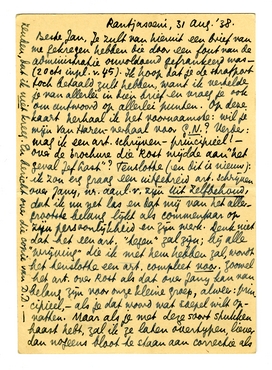 Rantjasoeni, 31 Aug. '38.
Beste Jan, Je zult van hieruit een brief van
me gekregen hebben die door een fout van de
administratie onvoldoend gefrankeerd was —
(20 ct inpl. v. 45). Ik hoop dat je de strafport
toch betaald zult hebben, want ik vertelde
je van allerlei in dien brief en vraag je ook
om antwoord op allerlei punten. Op deze
kaart herhaal ik het voornaamste: wil je
mijn Van Haren-verhaal voor G.N.? Verder:
mag ik een art. schrijven — principieel! —
over de brochure die Kost wijdde aan "het
geval Jef Last"? Tenslotte (en dit is nieuw):
ik zou erg graag een uitgebreid art. schrijven
over Jany, n.a.v. zijn Uit Zelfbehoud,
dat ik nu net las en dat mij van het aller-
grootste belang lijkt als commentaar op
zijn persoonlijkheid en zijn werk. Denk niet
dat het een art. "tegen" zal zijn; bij alle
"wrijving" die ik met hem hebben zal, wordt
het tenslotte een art. compleet voor. Zoowel
het art. over Kost als dat over Jany kan van
belang zijn voor onze kleine groep, alweer: prin-
cipieel, — als je dat woord wat soepel wilt op-
vatten. Maar als je met deze soort stukken
haast hebt, zal ik ze laten overtypen, liever
dan nogeens bloot te staan aan correctie als